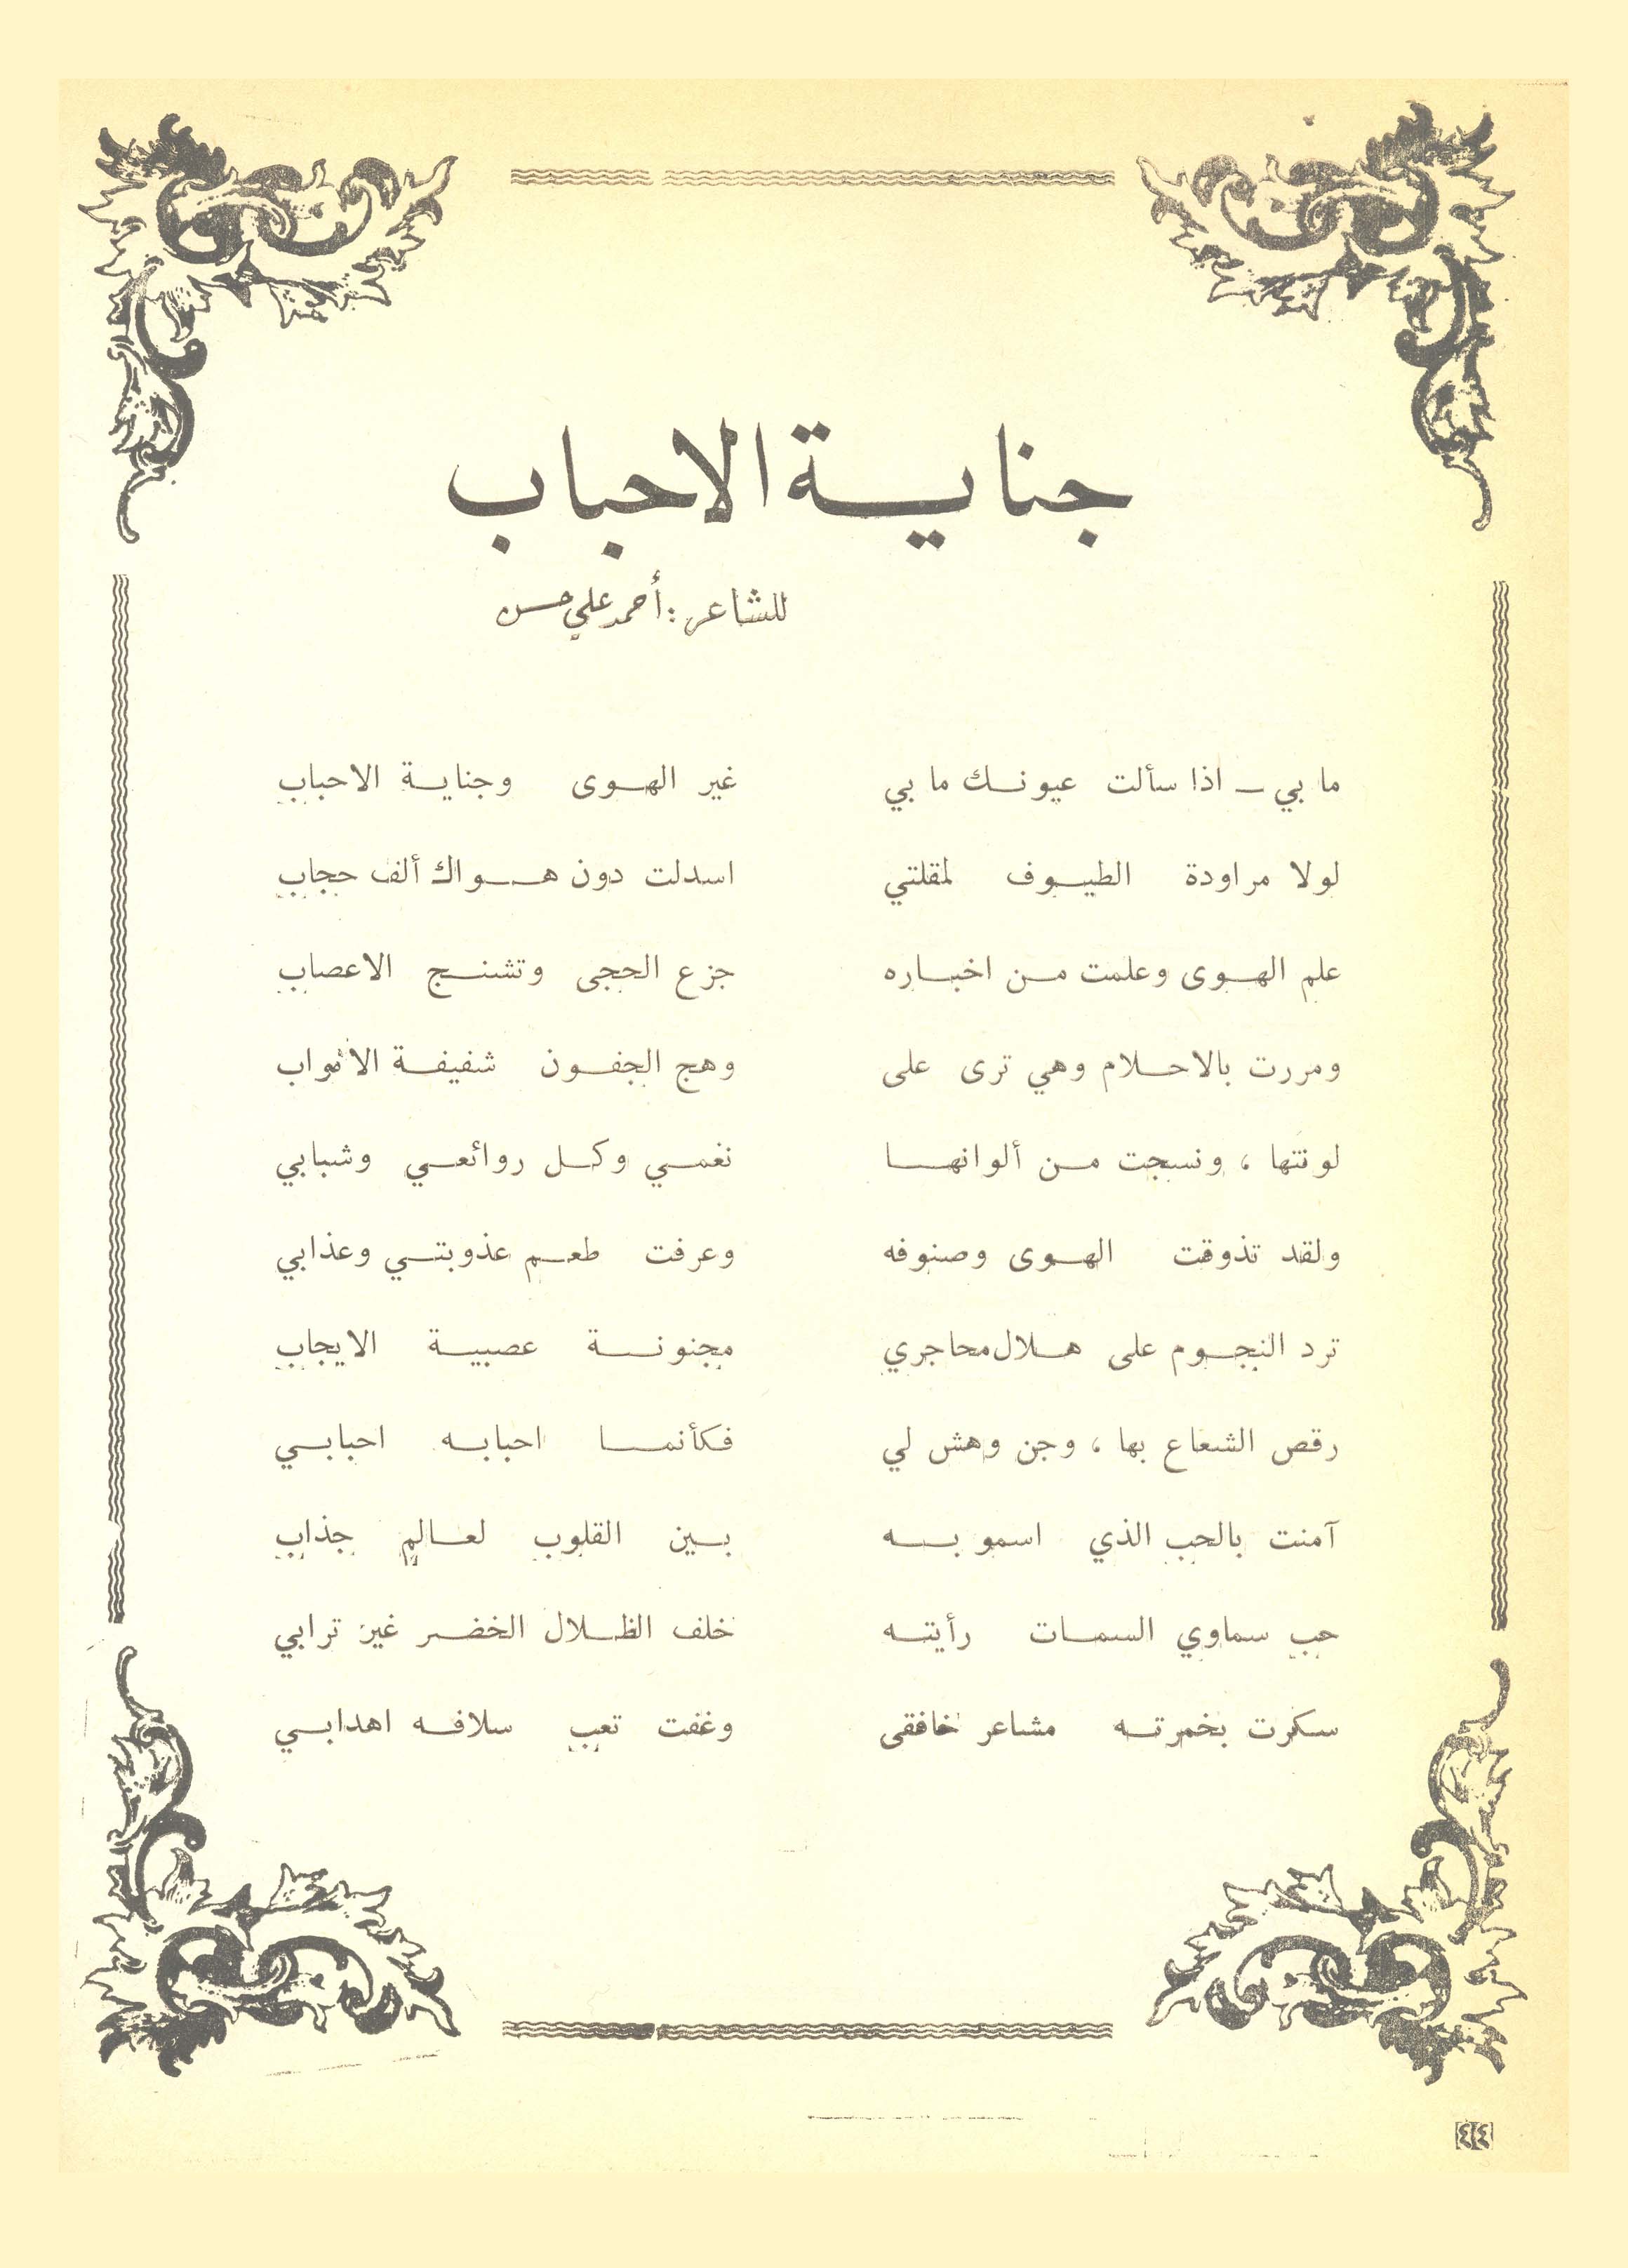 جنايــة الاحباب
للشاعر : أحمد علي حسن
ما بي ــ اذا سألت عيونــك ما بي غير الهــوى وجنايــة الاحباب
لولا مراودة الطيــوف لمقلتي اسدلت دون هــواك ألف حجاب
علم الهــوى وعلمت مــن اخبــاره جزع الحجى وتشنــج الاعصاب
ومررت بالاحــلام وهي ترى على وهج الجفــون شفيفــة
لونتها ، ونسجت مــن ألوانهــا نغمــي وكــل روائعــي وشبابي
ولقد تذوقت الهــوى وصنوفه وعرفت طعــم عذوبتــي وعذابي
ترد النجــوم على هــلال محاجري مجنونــة عصبيــة الايجاب
رقص الشعاع بها ، وجن وهش لي فكأنمــا احبابــه احبابــي
آمنت بالحب الذي اسمو بــه بــين القلوب لعــالم جذاب
حب سماوي السمــات رأيتــه خلف الظــلال الخضــر غير ترابي
سكرت بخمرتــه مشاعر خافقى وغفت تعب سلافــه اهدابــي
٤٤